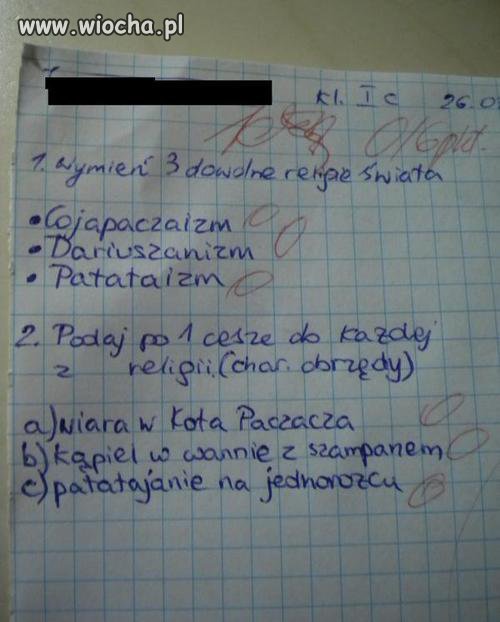 www.wiocha.pl
Kl. I c 26.0
0/6 pkt.
1. Wymień 3 dowolne religie świata
• Cojapaczaizm 0
• Dariuszanizm 0
• Patataizm 0
2. Podaj po 1 cesze do każdej
z religii. (char. obrzędy)
a) wiara w Kota Paczacza 0
b) kąpiel w wannie z szampanem 0
c) patatajanie na jednorożcu 0